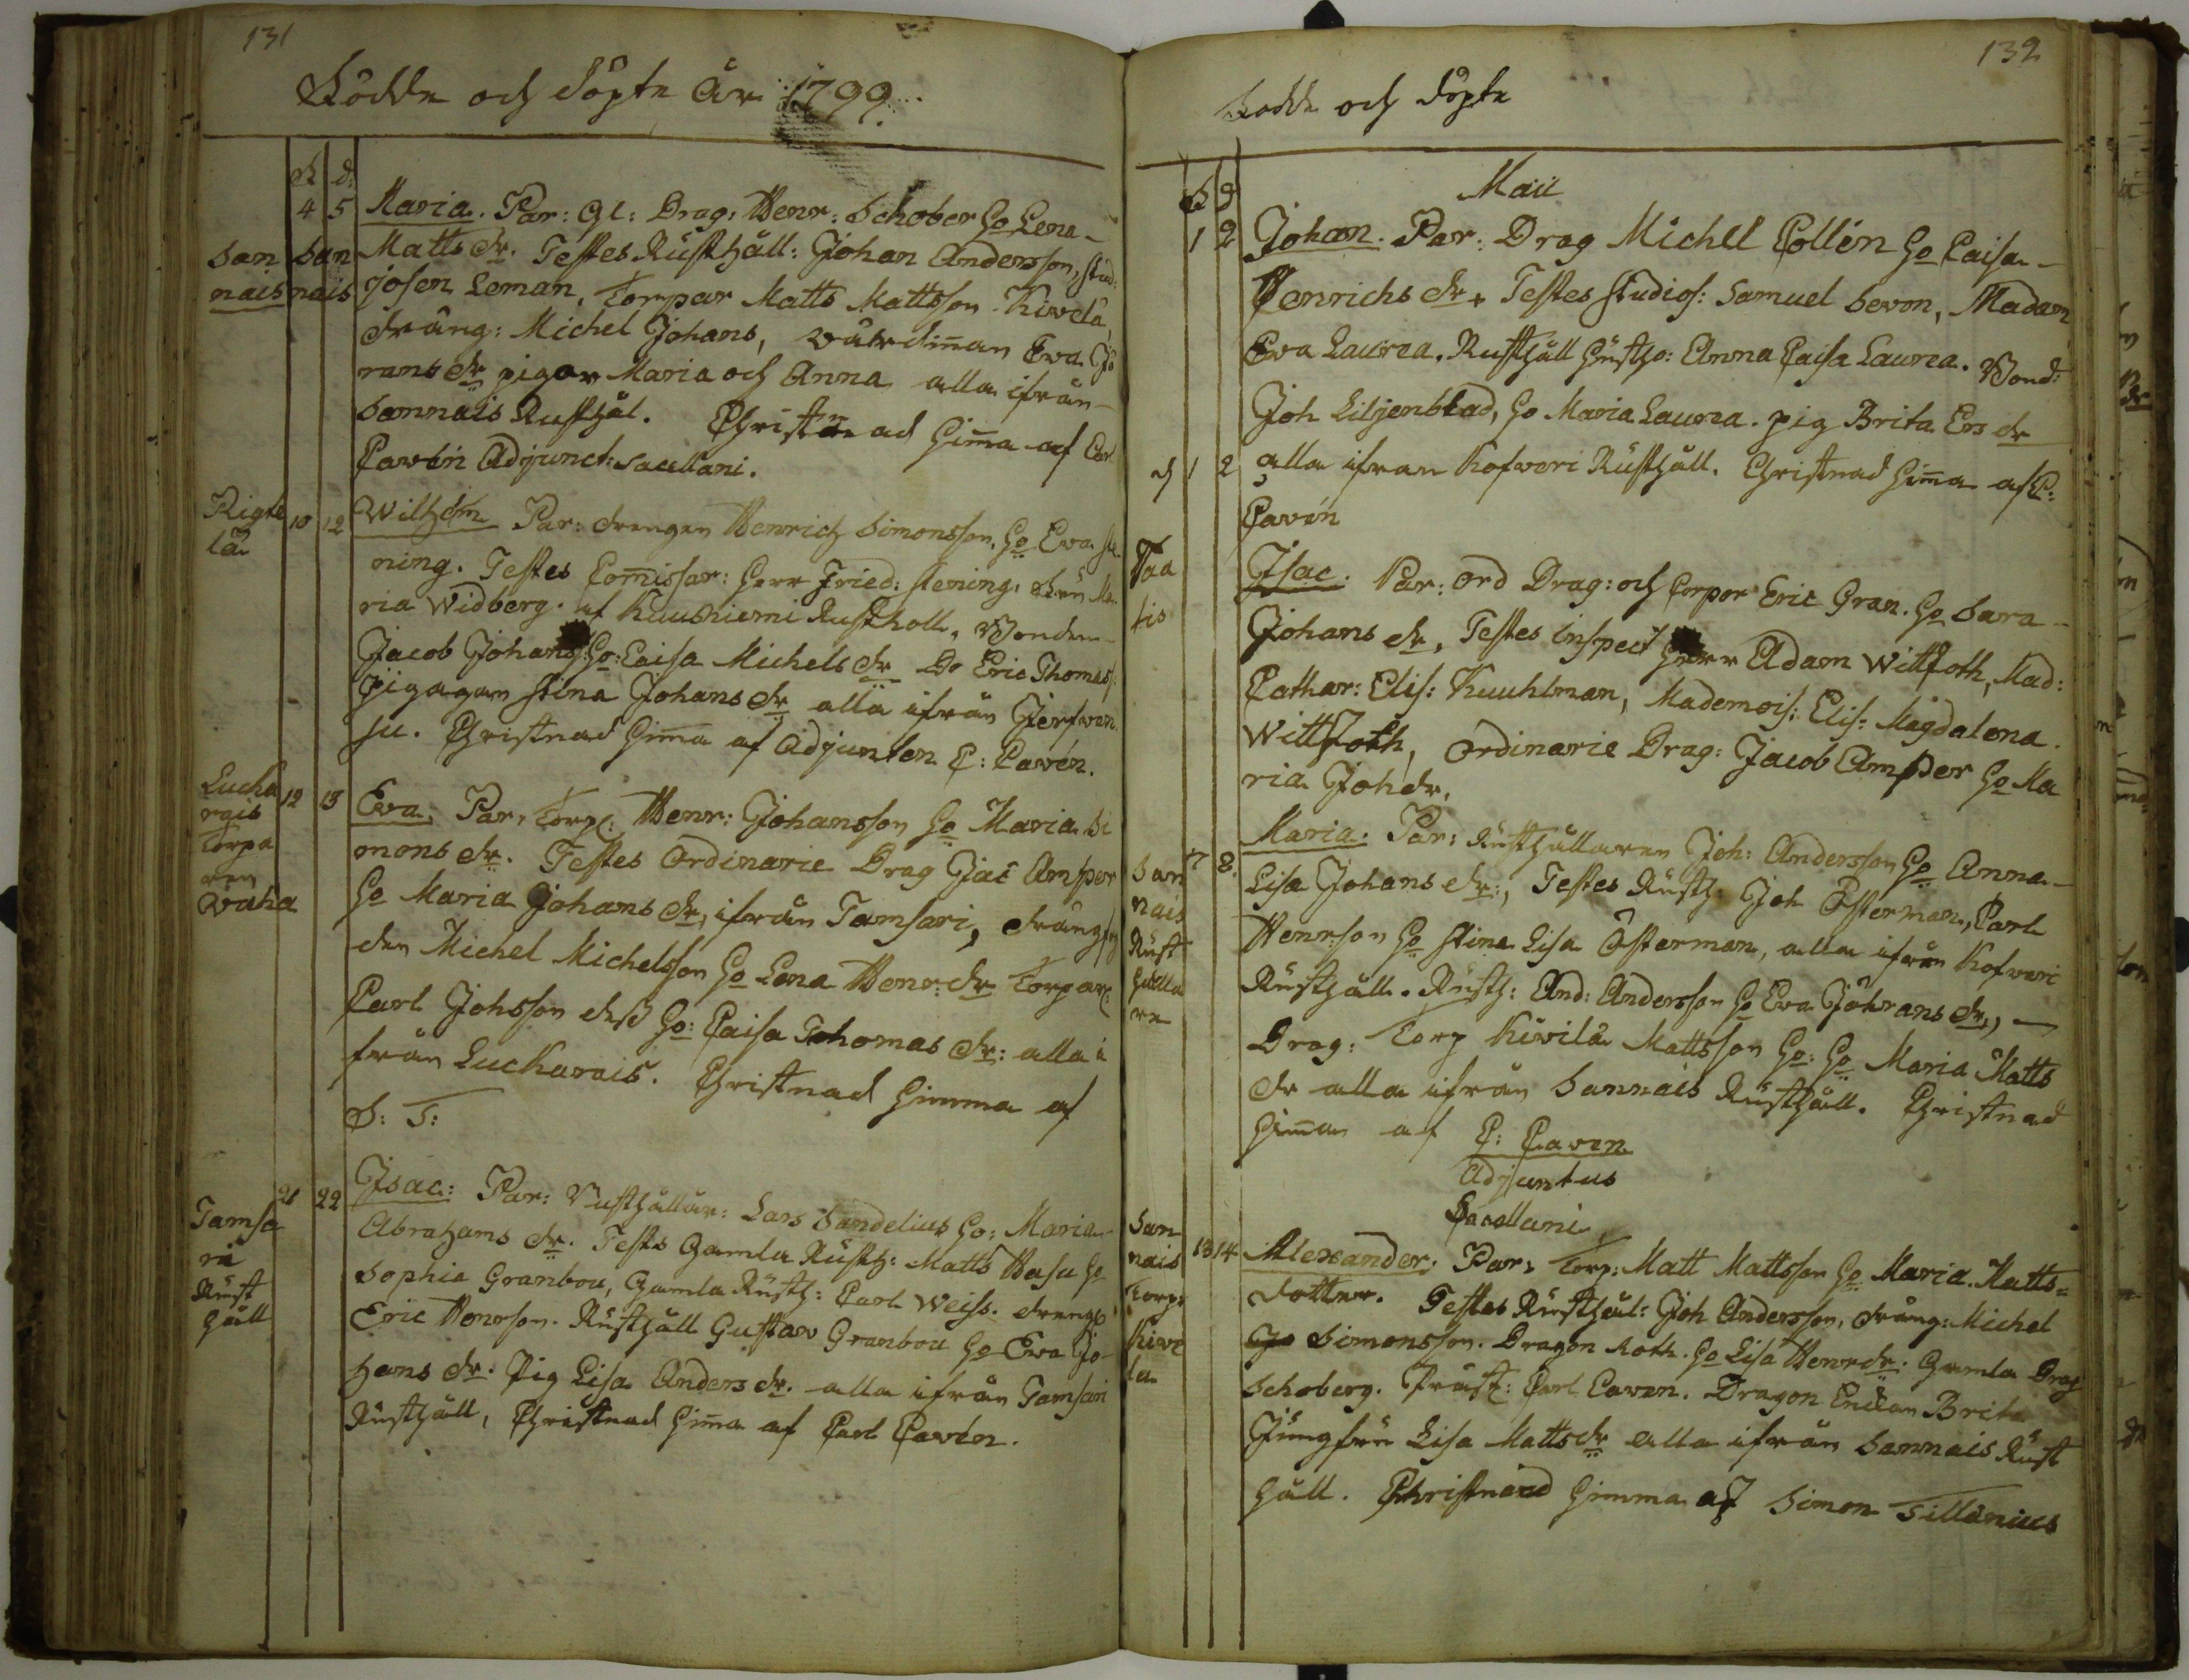 131
Födde och döpte År 1799
F d:
4 5 Maria. Par: Gl: Drag: Henr: Schober Ho Lena
San nais San nais Matts dr. Testes Rusthåll: Johan Andersson, stud:
Josen Leman, Torpar Matts Mattsson Kivelä,
dräng: Michel Johans, Eva Jö
rans dr pigor Maria och Anna alla ifrån
Sannais Rusthål. Christnad hima af Carl
Cavén Adjunct: Sacellani.
Rigte lä 10 12 Wilhelm Par: drengen Henrich Simonsson, Ho Eva ste
ning. Testes Comissar: Herr Fried: stening, Fru Ma
ria Widberg. af Kuuskiemi Rustholl, Bonden
Jacob Johans: Ho: Caisa Michels dr Do Eric Thomass
pigagan stina Johans dr alla ifrån Jerfwen
su. Christnad hima af Adjunten C: Cavén.
Lucka rais Torpa ren Waha 12 13 Eva. Par: Torp: Henr: Johansson Ho Maria Si
mons dr. Testes Ordinarie Drag Jac Amper
Ho Maria Johans dr, ifrån Tamsari, dräng
den Michel Michelsson Ho Lena Henr: dr Torpar:
Carl Johsson dess Ho: Caisa Thomas dr: alla i
från Luckarais. Christnad himma af
S: T:
Tamsa ri Rust håll 21 22 Isac: Par: Rusthållar: Lars Sandelius Ho: Maria
Abrahams dr. Tests Gamla Rusth: Matts Hasu Ho
Sophia Granbou, Gamla Rusth: Carl Weiss. drengr
Eric Henrson. Rusthåll Gustav Granbou Ho Ewa Jo
hans dr. Pig Lisa Anders dr. alla ifrån Tamsari
Rusthåll, Christnad hima af Carl Cavén.
132
Födde och döpte
Maii
F D
1 2 Johan. Par: Drag Michel Collén Ho Caisa
Henrichs dr. Testes studios: Samuel Sevon, Madam
Ewa Laurea. Rusthåll husthr: Anna Caisa Laurea. Bond:
Joh Liljenblad, Ho Maria Laurea. pig Brita Ers dr
1 2 alla ifran Kofveri Rusthåll. Christnad hima af C:
Cavén
Isac. Par: ord Drag: och Corpor Eric Gran. Ho Sara
Johans dr, Testes Inspect Herr Adam Wittfoth, Mad:
Cathar: Elis: Kuuhlman, Mademois: Elis: Magdalena
Wittfoth, Ordinarie Drag: Jacob Amper Ho Ma
ria Joh dr.
San nais Rust hålla re 7 8 Maria. Par: Rusthållaren Joh: Andersson Ho Anna
Lisa Johans dr:, Testes Rusth: Joh Österman, Carl
Henrson Ho stina Lisa Österman, alla ifrån Kofweri
Rusthåll. Rusth: And: Andersson Ho Ewa Jöhrans dr,
Drag: Torp Kiwilä Mattsson Ho: Ho Maria Matts
dr alla ifrån Sannais Rusthåll. Christnad
hima af C: Caven
Adjuntus
Sacellani
San nais Torp: Kive la 13 14 Alexander. Par: Torp: Matt Mattsson Ho Maria. Matts=
dotter. Testes Rusthål: Joh Andersson, dräng: Michel
Simonsson. Dragon Roth. Ho Lisa Henr dr. Gamla Drag
Schoberg. Präst: Carl Caven. Dragon Enckan Brita
Jungfru Lisa Matts dr alla ifrån Sannais Rust
håll. Christnad himma af Simon Tillenius